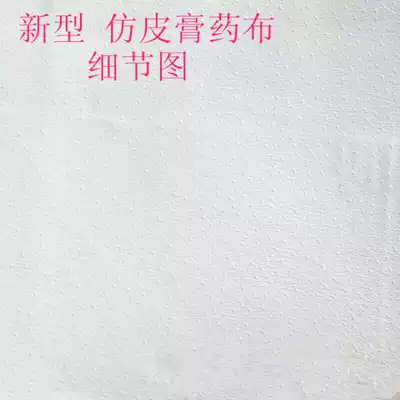 新型 仿皮膏药布
细节图